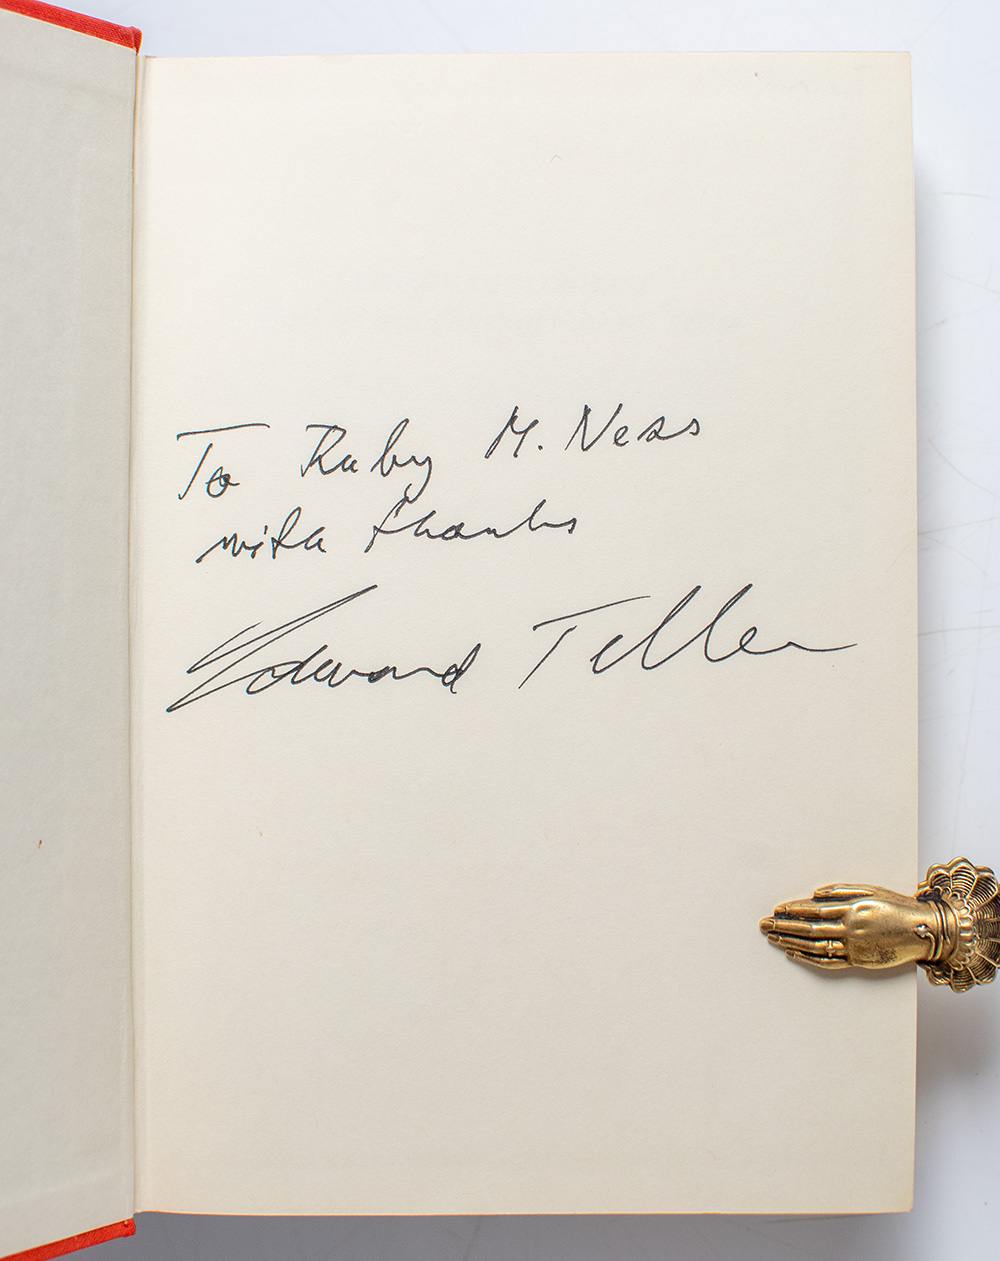 To Ruby M. Ness
with thanks
Edward Teller